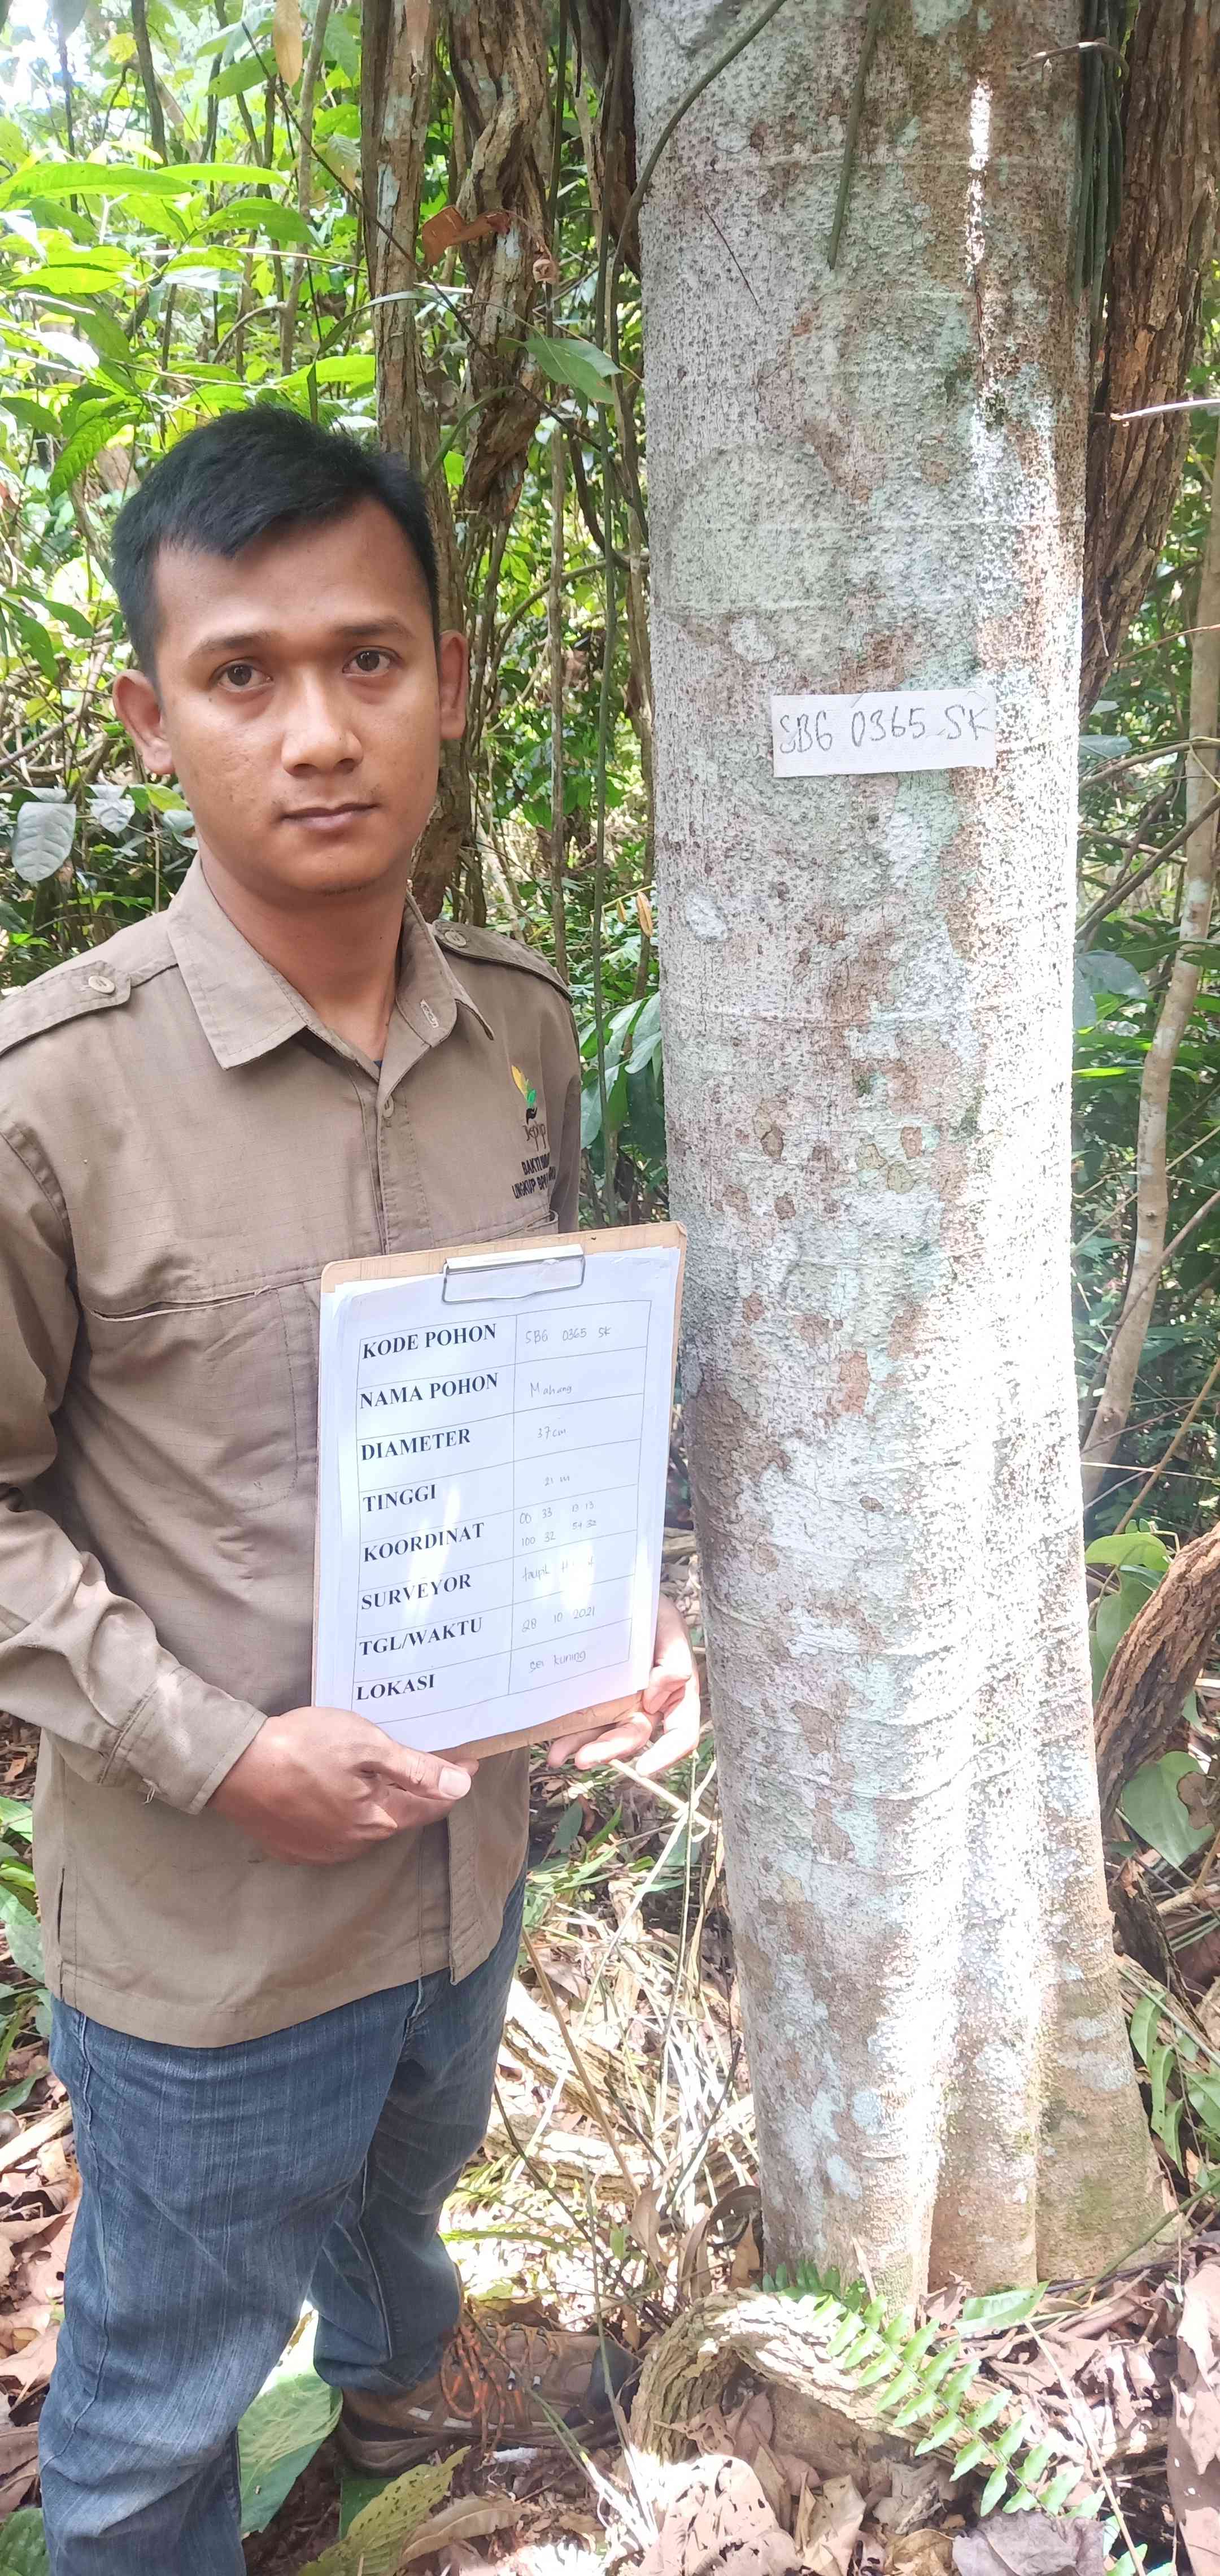 SBG 0365 SK
BAKTI
LINGKUP
KODE POHON SBG 0365 SK
NAMA POHON Mahang
DIAMETER 37 cm
TINGGI 21 m
KOORDINAT 00 33 13 13
100 32 54 32
SURVEYOR Taufik
TGL/WAKTU 28 10 2021
LOKASI Sei kuning